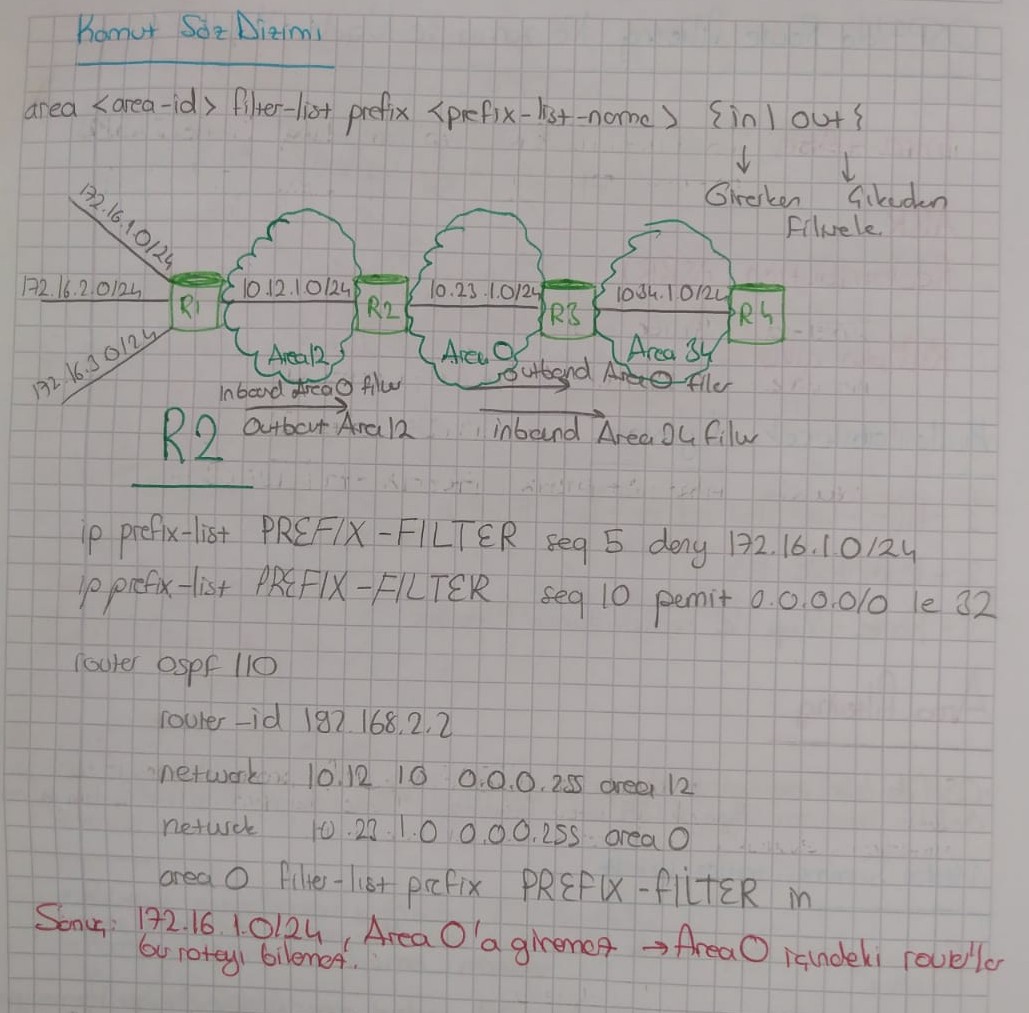 Komut Söz Dizimi
area <area-id> filter-list prefix <prefix-list-name> {in | out}
Girerken Çıkarken
Filtrele
172.16.1.0/24
172.16.2.0/24
172.16.3.0/24
R1
10.12.1.0/24
Area12
R2
10.23.1.0/24
Area 0
R3
10.34.1.0/24
Area 34
R4
Inbound Area 0 filter
Outbound Area 0 filter
Area 12
inbound Area 34 filter
R2
ip prefix-list PREFIX-FILTER seq 5 deny 172.16.1.0/24
ip prefix-list PREFIX-FILTER seq 10 permit 0.0.0.0/0 le 32
router ospf 110
router-id 192.168.2.2
network 10.12 1 0 0.0.0.255 area 12
network 10.23.1.0 0.0.0.255 area 0
area 0 filter-list prefix PREFIX-FİLTER in
Sonuç: 172.16.1.0/24, Area 0'a giremez → Area 0 içindeki router'lar
bu rotayı bilemez.